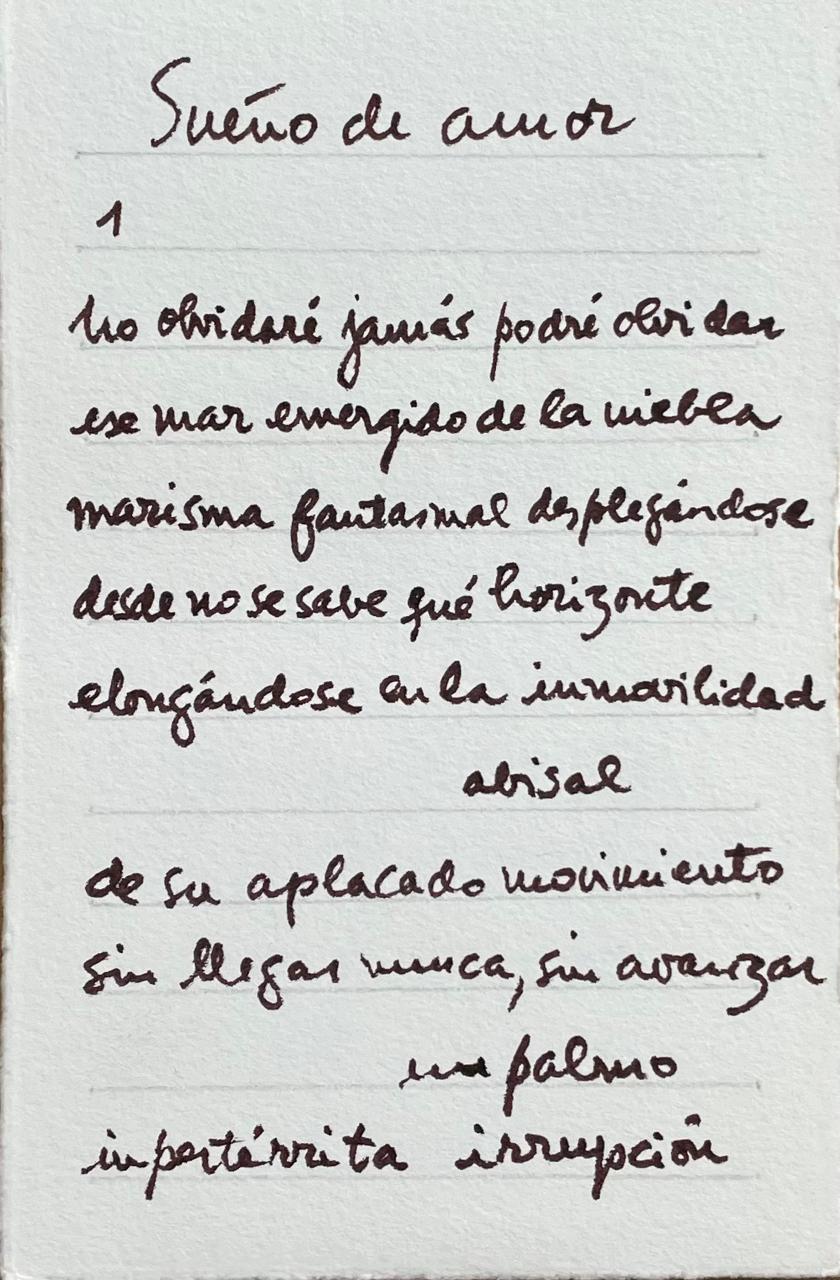 Sueño de amor
1
no olvidaré jamás podré olvidar
ese mar emergido de la niebla
marisma fantasmal desplegándose
desde no se sabe qué horizonte
elongándose en la inmovilidad
abisal
de su aplacado movimiento
sin llegar nunca, sin avanzar
un palmo
inpertérrita irrupción